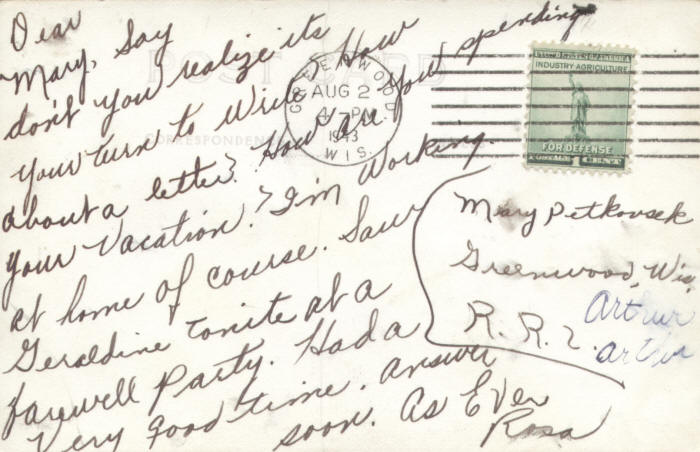 Dear
Mary, Say
don't you realize its
your turn to write? How
about a letter? How are you spending
your vacation? I'm working
at home of course. Saw
Geraldine tonite at a
farewell Party. Had a
Very Good time. Answer
soon. As Ever
Rosa
POST CARD
CORRESPONDENCE
GREENWOOD
AUG 2
PM
1943
WIS.
INDUSTRY AGRICULTURE
FOR DEFENSE
POSTAGE 1 CENT
Mary Petkovsek
Greenwood, Wis,
R. R. 2.
Arthur
arthur